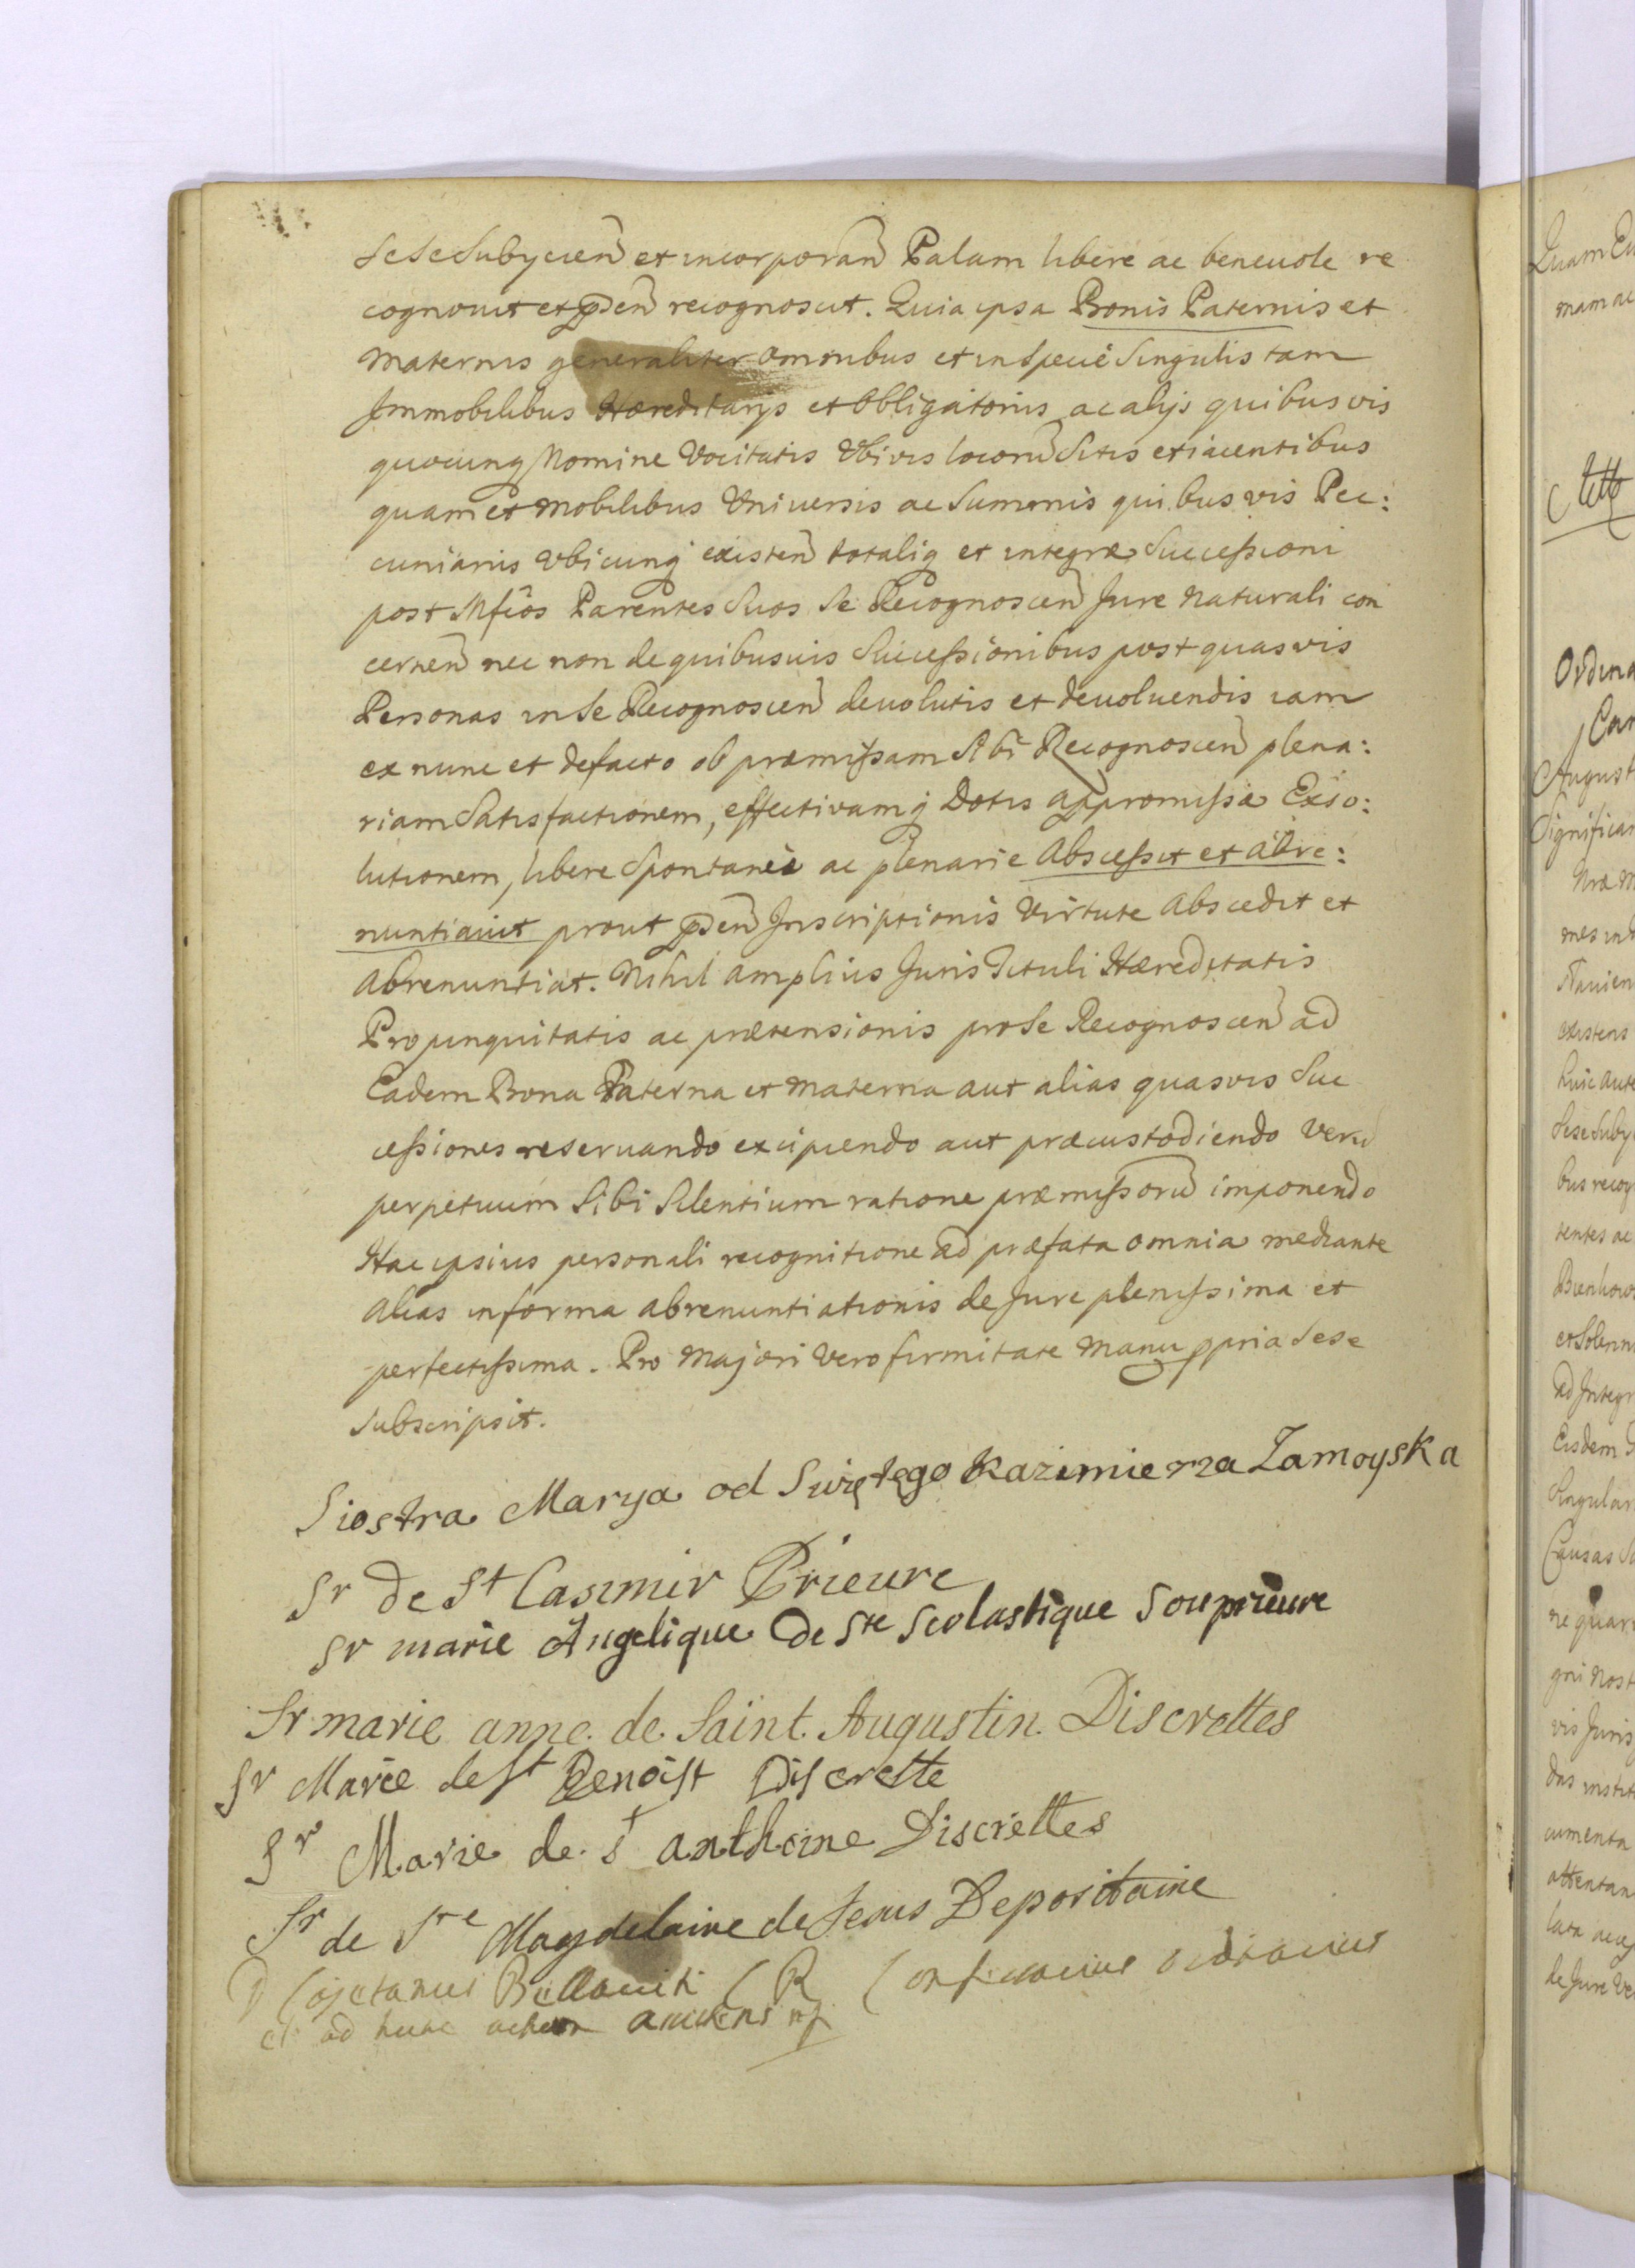 Sese Subycien et incorporan Palam libere ac beneuole re
cognouit et pden recognoscit. Quia ipsa Bonis Paternis et
Maternis generaliter omnibus et in Specie Singulis tam
Immobilibus Hæreditarijs et Obligatorijs ac alijs quibusvis
quocunq Nomine Vocitatis Vbivis locoru Sitis et iacentibus
quam et Mobilibus Vniuersis ac Summis quibusvis Pec:
cuniarijs vbicunq existen totaliq et integræ Successioni
post Mfcos Parentes Suos Se Recognoscen Jure Naturali con
cernen nec non de quibusuis Successionibus post quasvis
Personas in Se Recognoscen deuolutis et deuoluendis iam
ex nunc et defacto ob præmissam Sibi Recognoscen plena:
riam Satisfactionem, effectivamq Dotis appromissæ Exso:
lutionem, libere Spontanee ac plenarie Abscessit et abre:
nuntiauit prout pden Inscriptionis Virtute Abscedit et
Abrenuntiat. Nihil amplius Juris Tituli Hæreditatis
Propinquitatis ac prætensionis pro Se Recognoscen ad
Eadem Bona Paterna et Materna aut alias quasvis Suc
cessiones reservando excipiendo aut præcustodiendo Veru
perpetuum Sibi Silentium ratione præmissoru imponendo
Hac ipsius personali recognitione ad præfata omnia mediante
Alias in forma abrenuntiationis de Jure plenissima et
perfectissima. Pro Majori Vero firmitate Manu ppria Sese
Subscripsit.
Siostra Marya od Swiętego Kazimierza Zamoyska
Sr De St Casimir Prieure
Sr marie Angelique De Ste Scolastique Souprieure
Sr marie anne de Saint Augustin Discrettes
Sr Marie de St Benoist Discrette
Sr Marie de St anthoine Discrettes
Sr de Ste Magdelaine de Jesus Depositaire
D Cajetanus C R
et ad hunc actum
Quam
mam ac
Ordina
Can
August
Significa
existens
huic aute
Sese Suby
bus recog
tentes ac
et Solenn
ad Integr
Eisdem
Singular
Causas
gni Nost
vis Juris
das instit
cumenta
attentan
de Jure Ve